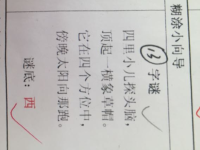 糊涂小向导
(13)字谜
四里小儿探头脑，
顶起一横象草帽。
它在四个方位中，
傍晚太阳向那跑。
谜底：西